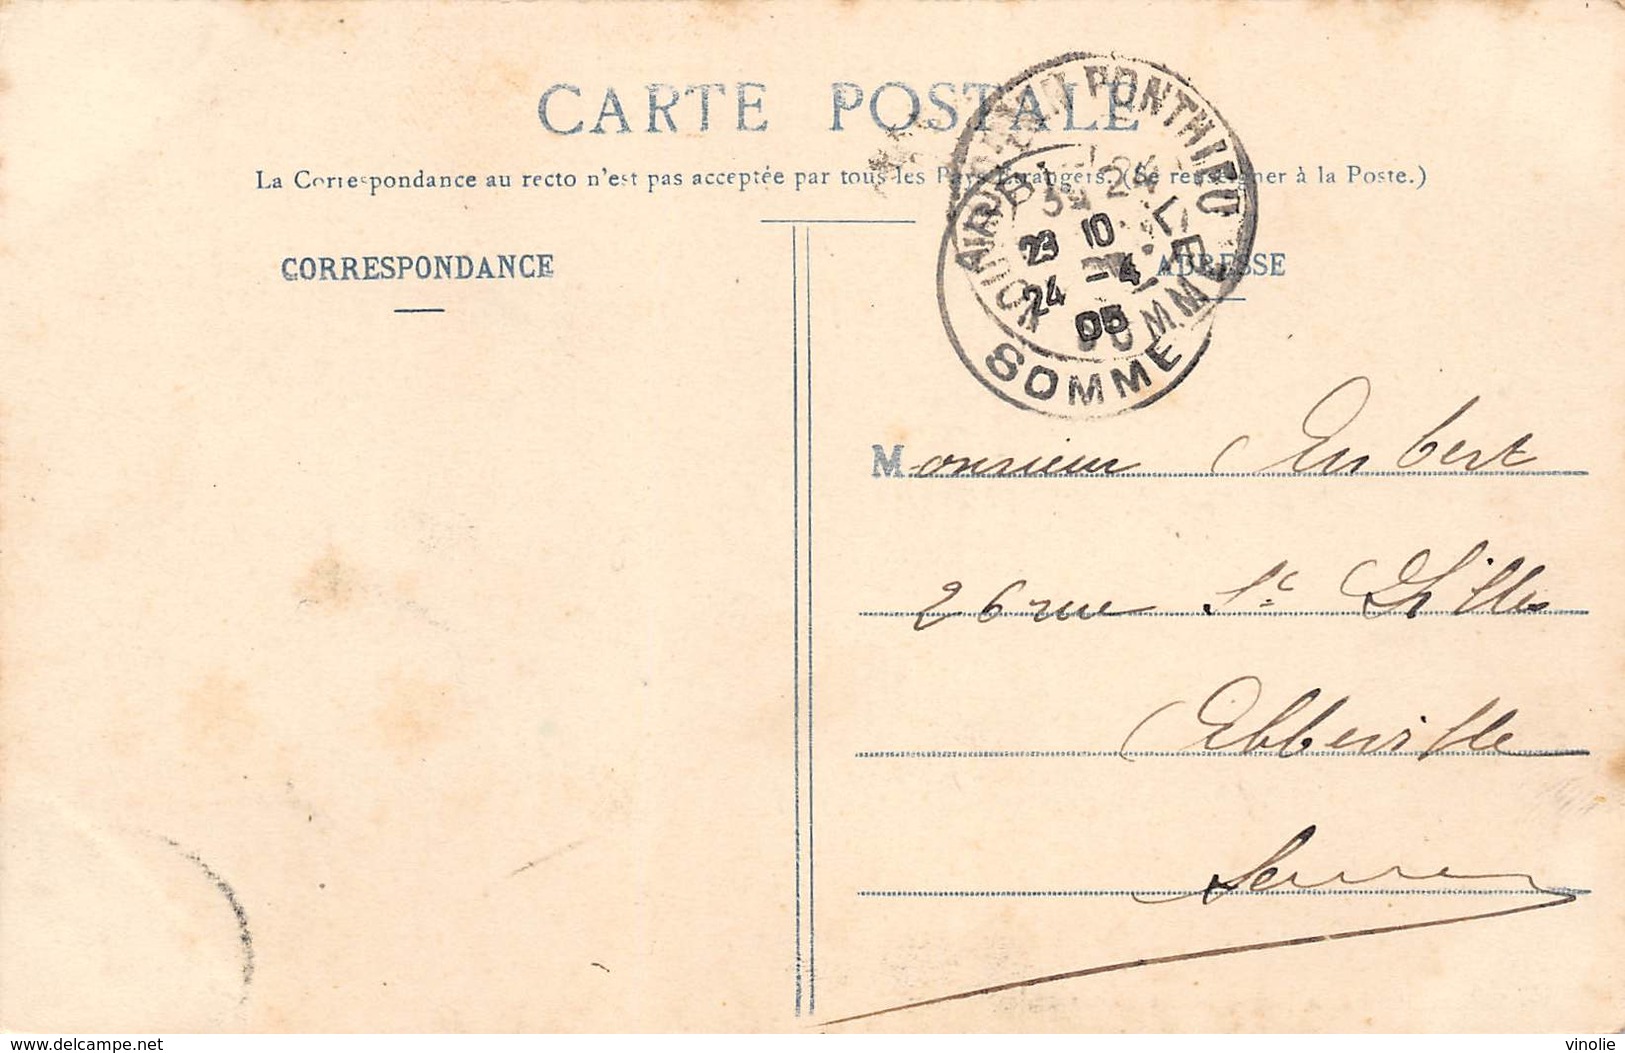 CARTE POSTALE
La Correspondance au recto n'est pas acceptée par tous les Pays Étrangers. (Se renseigner à la Poste.)
CORRESPONDANCE
ADRESSE
PONTHIEU
23 10
24 -4
05
SOMME
SOMME
Monsieur
26 rue St Gilles
Abbeville
Somme
www.delcampe.net
vinolie